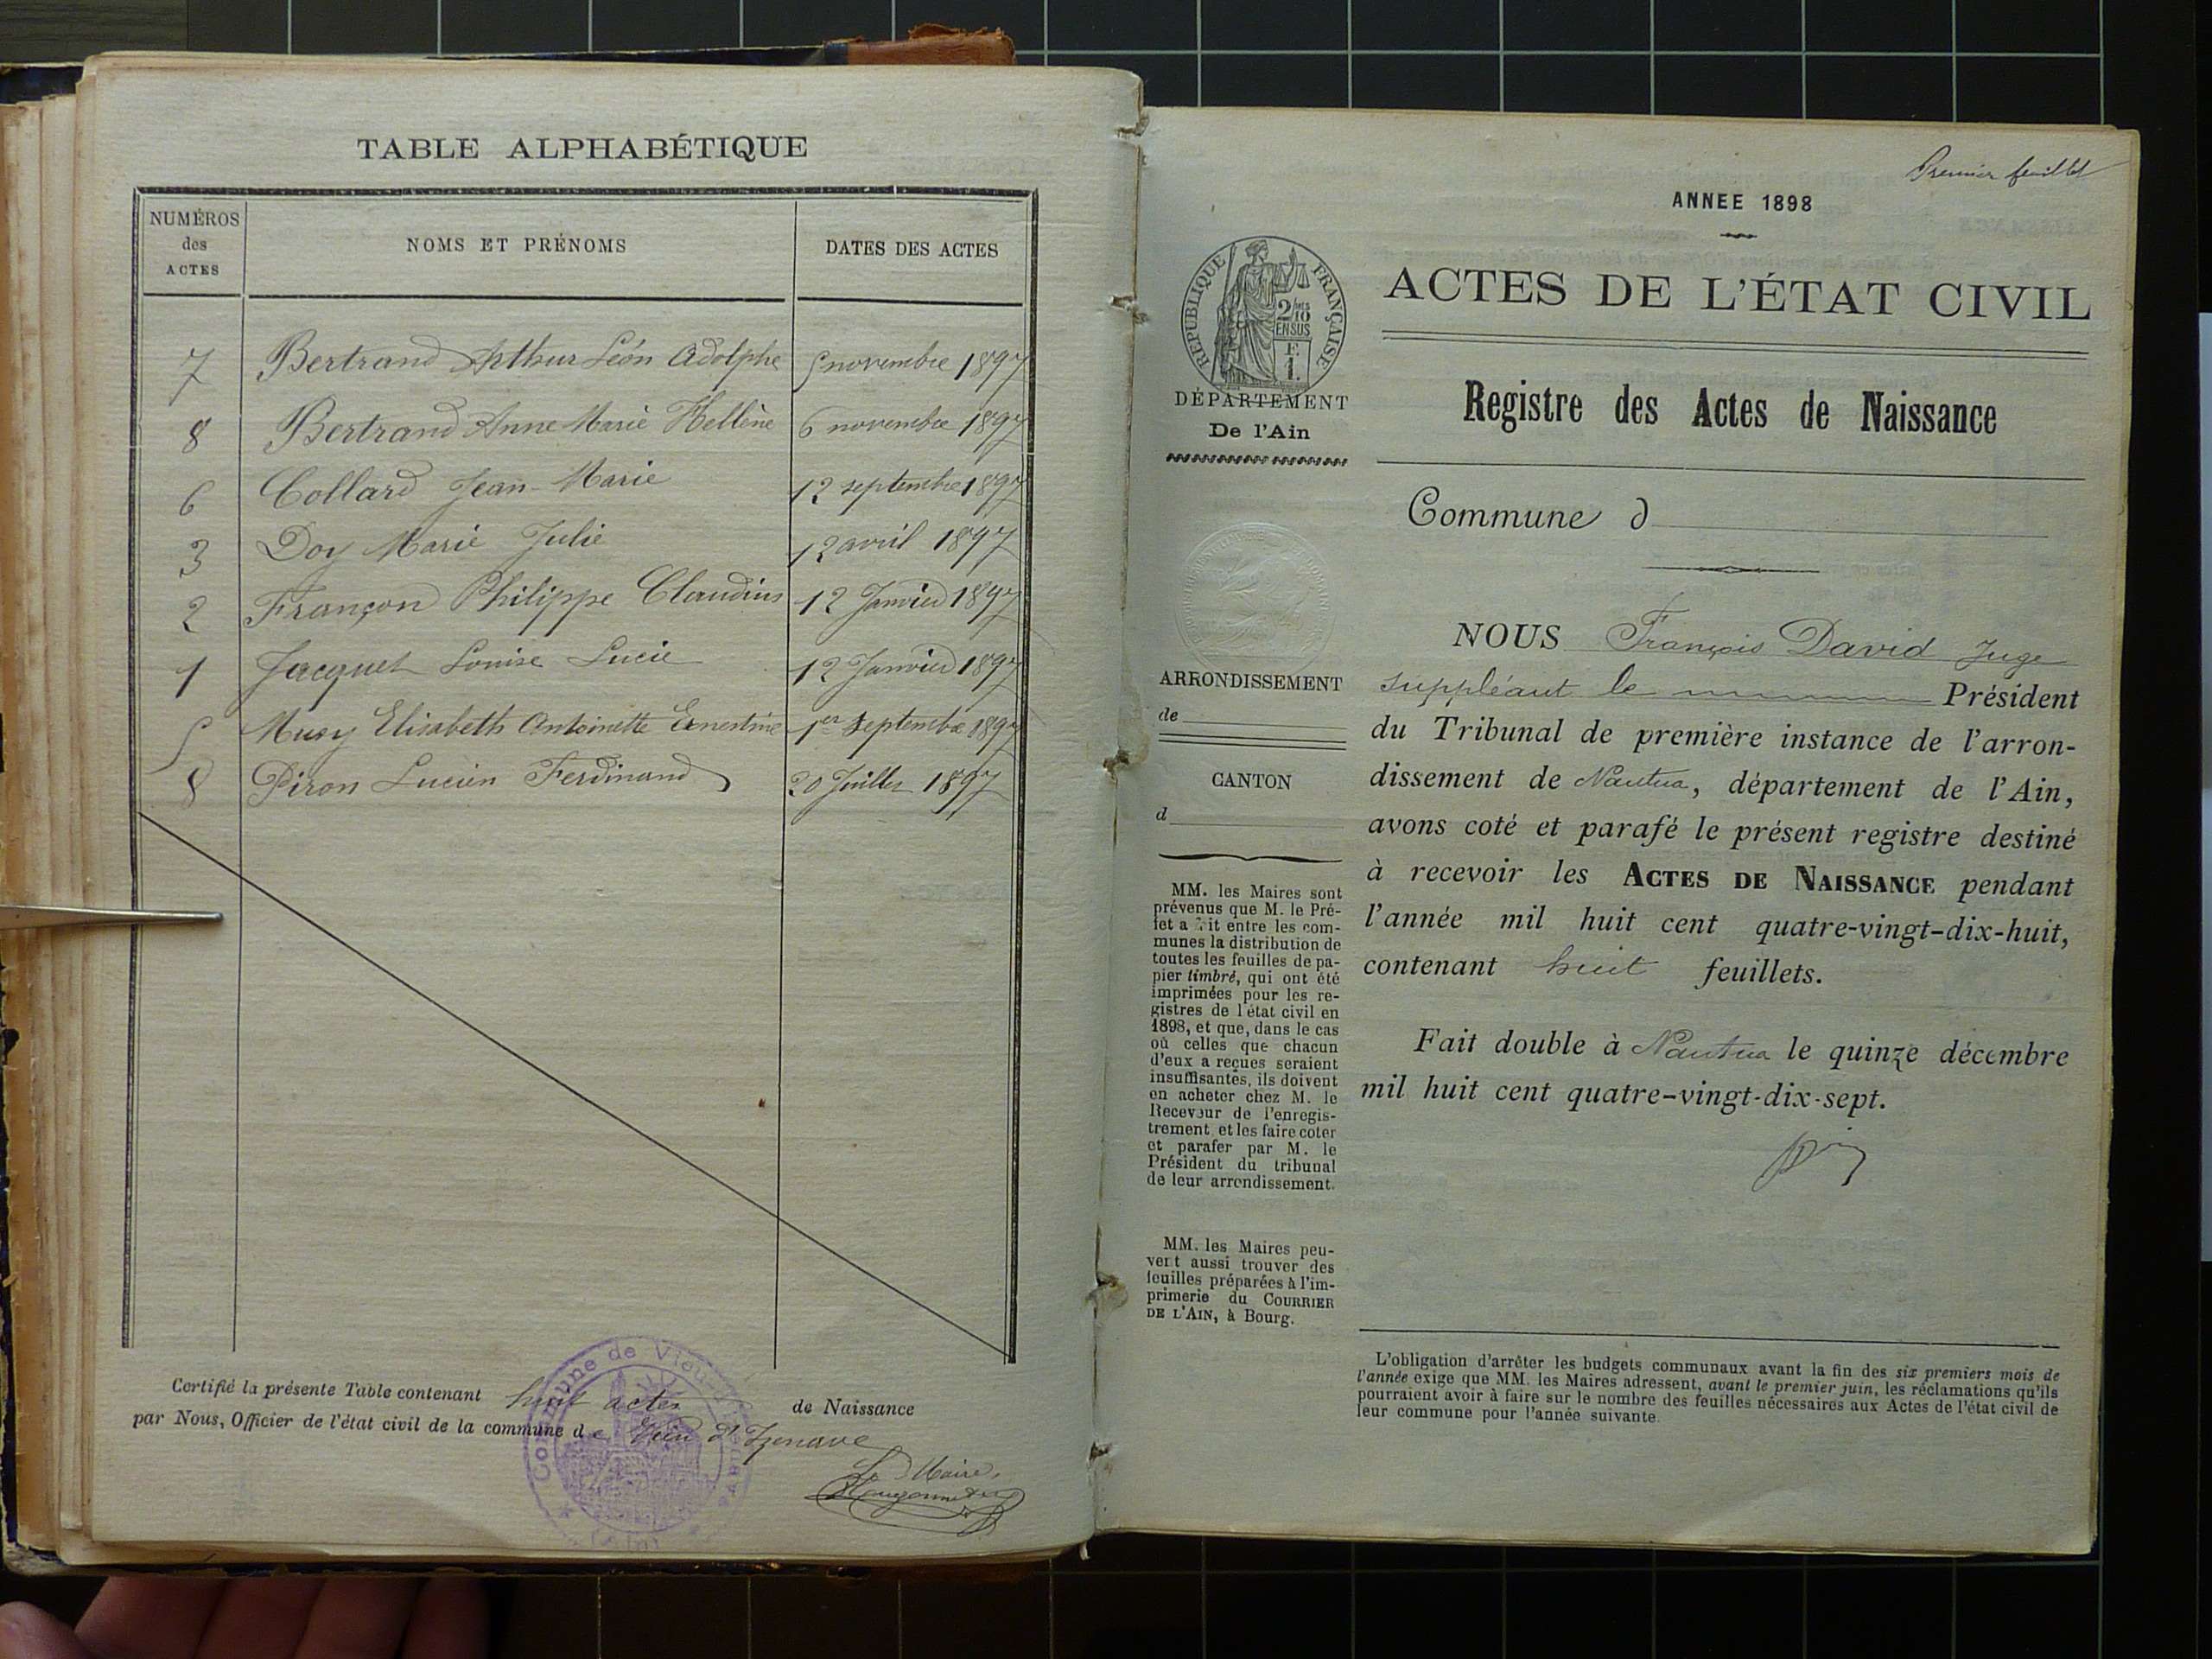 TABLE ALPHABÉTIQUE
NUMÉROS des ACTES
NOMS ET PRÉNOMS
DATES DES ACTES
7 Bertrand Arthur Léon Adolphe 5 novembre 1897
8 Bertrand Anne Marie Hellène 6 novembre 1897
6 Collard Jean-Marie 12 septembre 1897
3 Doy Marie Julie 12 avril 1897
2 Françon Philippe Claudius 12 Janvier 1897
1 Jacquet Louise Lucie 12 Janvier 1897
5 Musy Elisabeth Antoinette Ernestine 1er Septembre 1897
8 Piron Lucien Ferdinand 20 Juillet 1897
Certifié la présente Table contenant huit actes de Naissance
par Nous, Officier de l'état civil de la commune de Vieu d'Izenave
Le Maire,
Commune de Vieu
(Ain)
Premier feuillet
ANNEE 1898
ACTES DE L'ÉTAT CIVIL
REPUBLIQUE FRANÇAISE
2/10
EN SUS
F.
1.
DÉPARTEMENT
De l'Ain
Registre des Actes de Naissance
Commune d
ARRONDISSEMENT
de
CANTON
d
NOUS François David Juge
suppléant le Président
du Tribunal de première instance de l'arron-
dissement de Nantua, département de l'Ain,
avons coté et parafé le présent registre destiné
à recevoir les ACTES DE NAISSANCE pendant
l'année mil huit cent quatre-vingt-dix-huit,
contenant huit feuillets.
Fait double à Nantua le quinze décembre
mil huit cent quatre-vingt-dix-sept.
MM. les Maires sont
prévenus que M. le Pré-
fet a fait entre les com-
munes la distribution de
toutes les feuilles de pa-
pier timbré, qui ont été
imprimées pour les re-
gistres de l'état civil en
1898, et que, dans le cas
où celles que chacun
d'eux a reçues seraient
insuffisantes, ils doivent
en acheter chez M. le
Receveur de l'enregis-
trement et les faire coter
et parafer par M. le
Président du tribunal
de leur arrondissement.
MM. les Maires peu-
vent aussi trouver des
feuilles préparées à l'im-
primerie du COURRIER
DE L'AIN, à Bourg.
L'obligation d'arrêter les budgets communaux avant la fin des six premiers mois de
l'année exige que MM. les Maires adressent, avant le premier juin, les réclamations qu'ils
pourraient avoir à faire sur le nombre des feuilles nécessaires aux Actes de l'état civil de
leur commune pour l'année suivante.